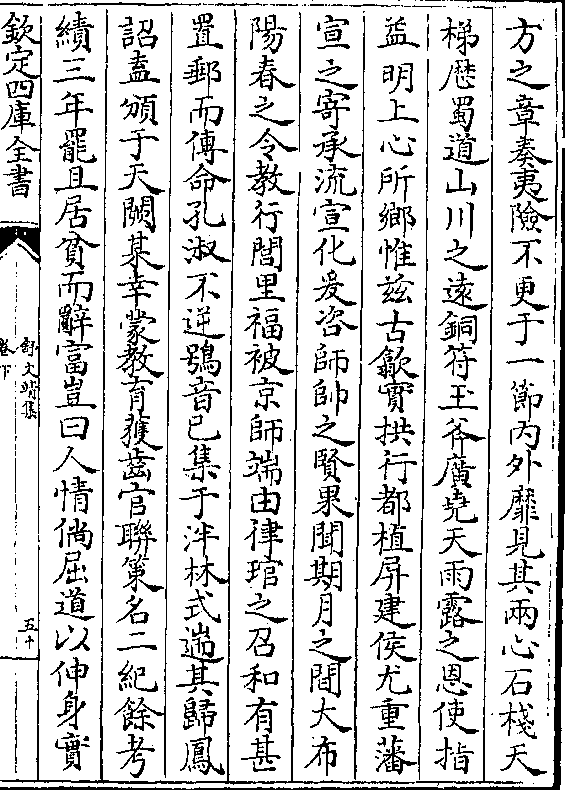 方之章奏夷險不更于一節内外靡見其兩心石棧天
梯歴蜀道山川之遠銅符玉斧廣堯天雨露之恩使指
益明上心所鄉惟兹古歙實拱行都植屏建侯尤重藩
宣之寄承流宣化爰咨師帥之賢果聞期月之間大布
陽春之令教行閭里福被京師端由律琯之召和有甚
置郵而傳命孔淑不逆鴞音已集于泮林式遄其歸鳳
詔盍頒于天闕某幸蒙教育獲齒官聯策名二紀餘考
績三年罷且居貧而辭富豈曰人情倘屈道以伸身實
欽定四庫全書
舒文靖集
卷下
五十